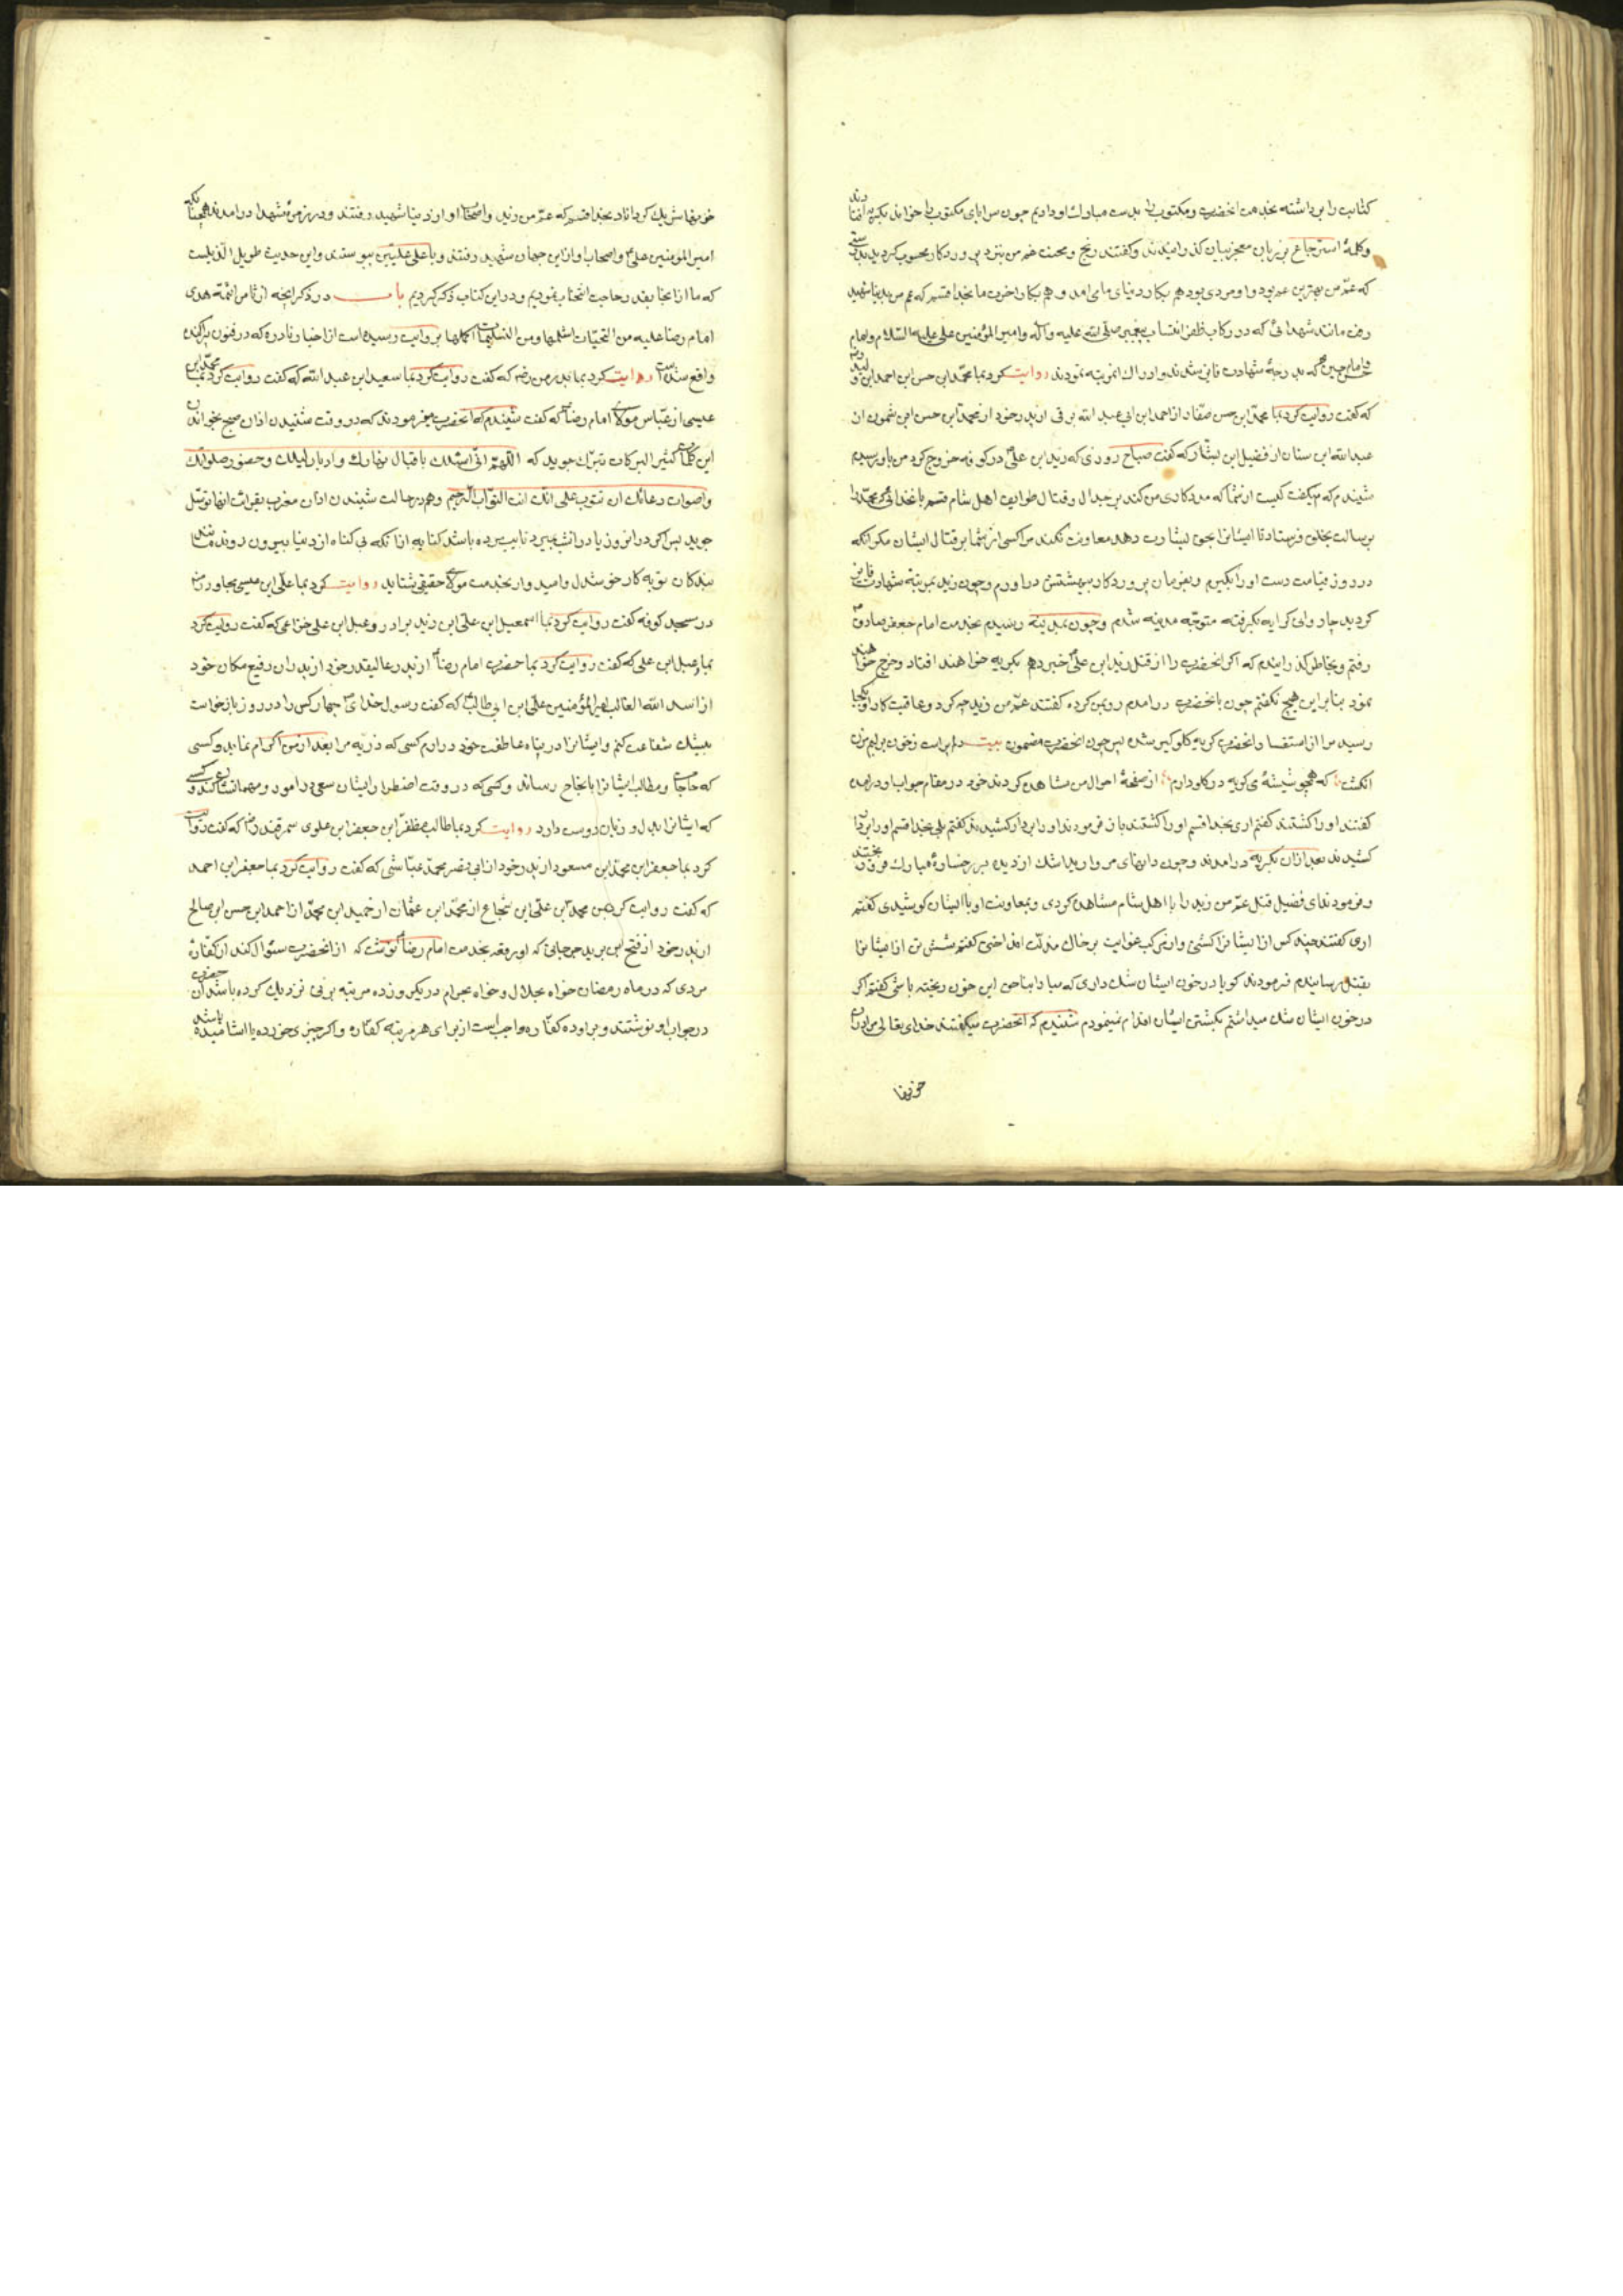 کتابت را برداشته بخدمت انحضرت و مکتوب را بدست مبارک او دادیم چون سراپای مکتوب را خواندند بگریه افتادند
وکلمۀ استرجاع بر زبان معجز بیان گذرانیدند وگفتند رنج ومحنت غم من بنزد پروردکار محسوب کردید بدرستی
که عم من بهترین عم بود واو مردی بود هم بکار دنیای ما می امد وهم بکار اخرت ما بخدا قسم که عم من از دنیا شهید
رفت مانند شهدائی که در رکاب ظفر انتساب پیغمبر صلی الله علیه وآله وامیر المؤمنین علی علیه السلام وامام
حسن وامام حسین که بدرجۀ شهادت فایز شدند وادراک انمرتبه نمودند روایت کرد بما محمد ابن حسن ابن احمد ابن ولید رضه
که گفت روایت کرد بما محمد ابن حسن صفار از احمد ابن ابی عبد الله برقی از پدر خود از محمد ابن حسن ابن شمون از
عبد الله ابن سنان از فضیل ابن یسار که گفت صباح روزی که زید ابن علی در کوفه خروج کرد من باو رسیدم
شنیدم که میکفت کیست از شما که مددکاری من کند بر جدال وقتال طوایف اهل شام قسم بانخدائی که محمد را
برسالت بخلق فرستاد تا ایشانرا بحق بشارت دهد معاونت نکند مرا کسی از شما بر قتال ایشان مکر انکه
در روز قیامت دست او را بگیرم وبفرمان پروردکار ببهشتش در اورم وچون زید بمرتبۀ شهادت فایز
کردید چاروای کرایه بگرفته متوجه مدینه شدم وچون بمدینه رسیدم بخدمت امام جعفر صادق
رفتم وبخاطر گذرانیدم که اکر انحضرت را از قتل زید ابن علی خبر دهم بگریه خواهند افتاد وجزع خواهند
نمود بنابر این هیچ نگفتم چون بانحضرت در امدم رو بمن کرده گفتند عم من زید چه کرد وعاقبت کار او بکجا
رسید مرا از استفسار انحضرت گریه گلوگیر شده پس چون انحضرت مضمون بیت پر است زخون برلبم مزن
انگشت که همچو شیشۀ می گریه در گلو دارم از صفحۀ احوال من مشاهده کردند خود در مقام جواب او در امده
گفتند او را کشتند گفتم اری بخدا قسم او را کشتند باز فرمودند او را بر دار کشیدند گفتم بلی بخدا قسم او را بر دار
کشیدند بعد ازان بگریه در امدند وچون دانهای مروارید اشک از دیده بر رخسارۀ مبارک فرو ریختند
وفرمودند ای فضیل قتل عم من زید را با اهل شام مشاهده کردی وبمعاونت او با ایشان کوشیدی گفتم
اری گفتند چند کس از ایشانرا کشتی گفتم شش تن از ایشانرا
بقتل رسانیدم فرمودند گویا در خون ایشان شک داری که مبادا بناحق این خون ریخته باشی گفتم اکر
در خون ایشان شک میداشتم بکشتن ایشان اقدام نمینمودم شنیدم که انحضرت میکفتند خدای تعالی مرا دران
خونها
خونها شریک کرداناد بخدا قسم که عم من زید واصحاب او از دنیا شهید رفتند ودر زمرۀ شهدا در امدند همچنانکه
امیر المؤمنین علی واصحاب او از این جهان شهید رفتند وباعلی علیین پیوستند واین حدیث طویل الذیلست
که ما از انجا بقدر حاجت انتخاب نمودیم ودر این کتاب ذکر کردیم باب در ذکر انچه از ثامن ائمۀ هدی
امام رضا علیه من التحیات اشملها ومن التسلیمات اکملها بروایت رسیده است از اخبار نادره که در فنون پراکنده
واقع شده است روایت کرد بما پدر من رضه که گفت روایت کرد بما سعید ابن عبد الله که گفت روایت کرد بما محمد ابن
عیسی از عباس مولای امام رضا که گفت شنیدم که انحضرت میفرمودند که در وقت شنیدن اذان صبح بخواندن
این کلمات کثیر البرکات تبرک جوید که اللهم انی اسئلک باقبال نهارک وادبار لیلک وحضور صلواتک
واصوات دعائک ان تتوب علی انک انت التواب الرحیم وهم در حالت شنیدن اذان مغرب بقرائت انها توسل
جوید پس اکر در انروز یا در انشب بمیرد تایب مرده باشد کنایه از انکه بی کناه از دنیا بیرون رود
بندکان توبه کار خوشدل وامیدوار بخدمت مولای حقیقی شتابد روایت کرد بما علی ابن عیسی مجاور رضه
در مسجد کوفه گفت روایت کرد بما اسمعیل ابن علی ابن رزین برادر دعبل ابن علی خزاعی که گفت روایت کرد
بما دعبل ابن علی که گفت روایت کرد بما حضرت امام رضا از پدر عالیقدر خود از پدران رفیع مکان خود
از اسد الله الغالب امیر المؤمنین علی ابن ابی طالب که گفت رسول خدای چهار کس را در روز بازخواست
بیشک شفاعت کنم وایشانرا در پناه عاطفت خود درارم کسی که ذریه مرا بعد از من اکرام نماید وکسی
که حاجات ومطالب ایشانرا بانجاح رساند وکسی که در وقت اضطرار ایشان سعی در امور ومهمات ایشان کند وکسی
که ایشانرا بدل وزبان دوست دارد روایت کرد بما طالب مظفر ابن جعفر ابن علوی سمرقندی رضه که گفت روایت
کرد بما جعفر ابن محمد ابن مسعود از پدر خود از ابی نضر محمد عیاشی که گفت روایت کرد بما جعفر ابن احمد
که گفت روایت کرد بمن محمد ابن علی ابن شجاع از محمد ابن عثمان از حمید ابن محمد از احمد ابن حسن ابن صالح
از پدر خود از فتح ابن یزید جرجانی که او رقعه بخدمت امام رضا نوشت که از انحضرت سئوال کند از کفارۀ
مردی که در ماه رمضان خواه بحلال وخواه بحرام در یکروز ده مرتبه بزنی نزدیک کرده باشد انحضرت
در جواب او نوشتند وبر او ده کفاره واجب است از برای هر مرتبه کفاره واکر چیزی خورده یا اشامیده باشد